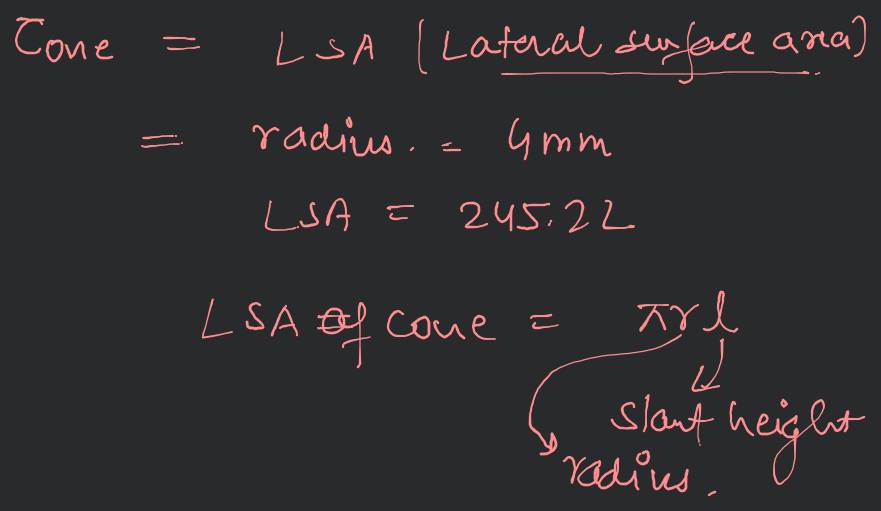 Cone = LSA (Lateral surface area)
= radius. = 4mm
LSA = 245.22
LSA of cone = πrl
slant height
radius.